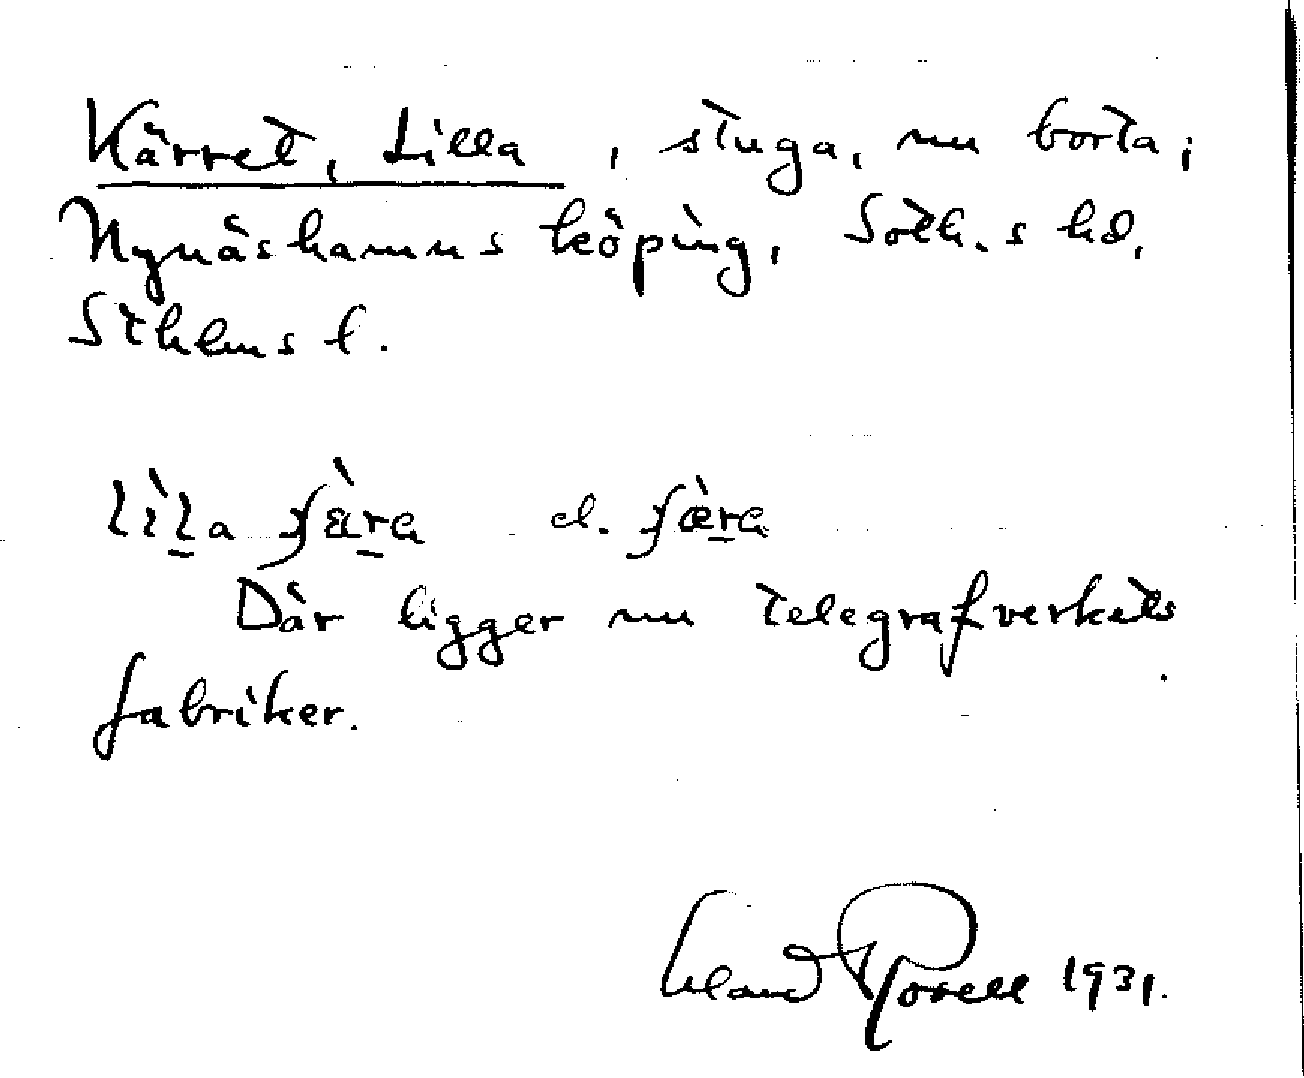 Kärret, Lilla, stuga, nu borta;
Nynäshamns köping, Soth.s hd,
Sthlms l.
lìla ʃæ̀ra el. ʃæ̀ra
Där ligger nu telegrafverkets
fabriker.
1931.